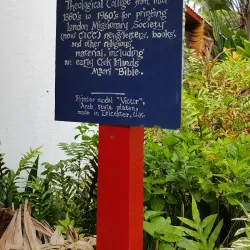 Theological College from mid
1860's to 1960's for printing
"London Missionary Society"
(now CICC) newsletters, books,
and other religious
material, including
an early Cook Islands
Maori Bible.
Printer model "Victor",
Arab style platen,
made in Leicester, U.K.